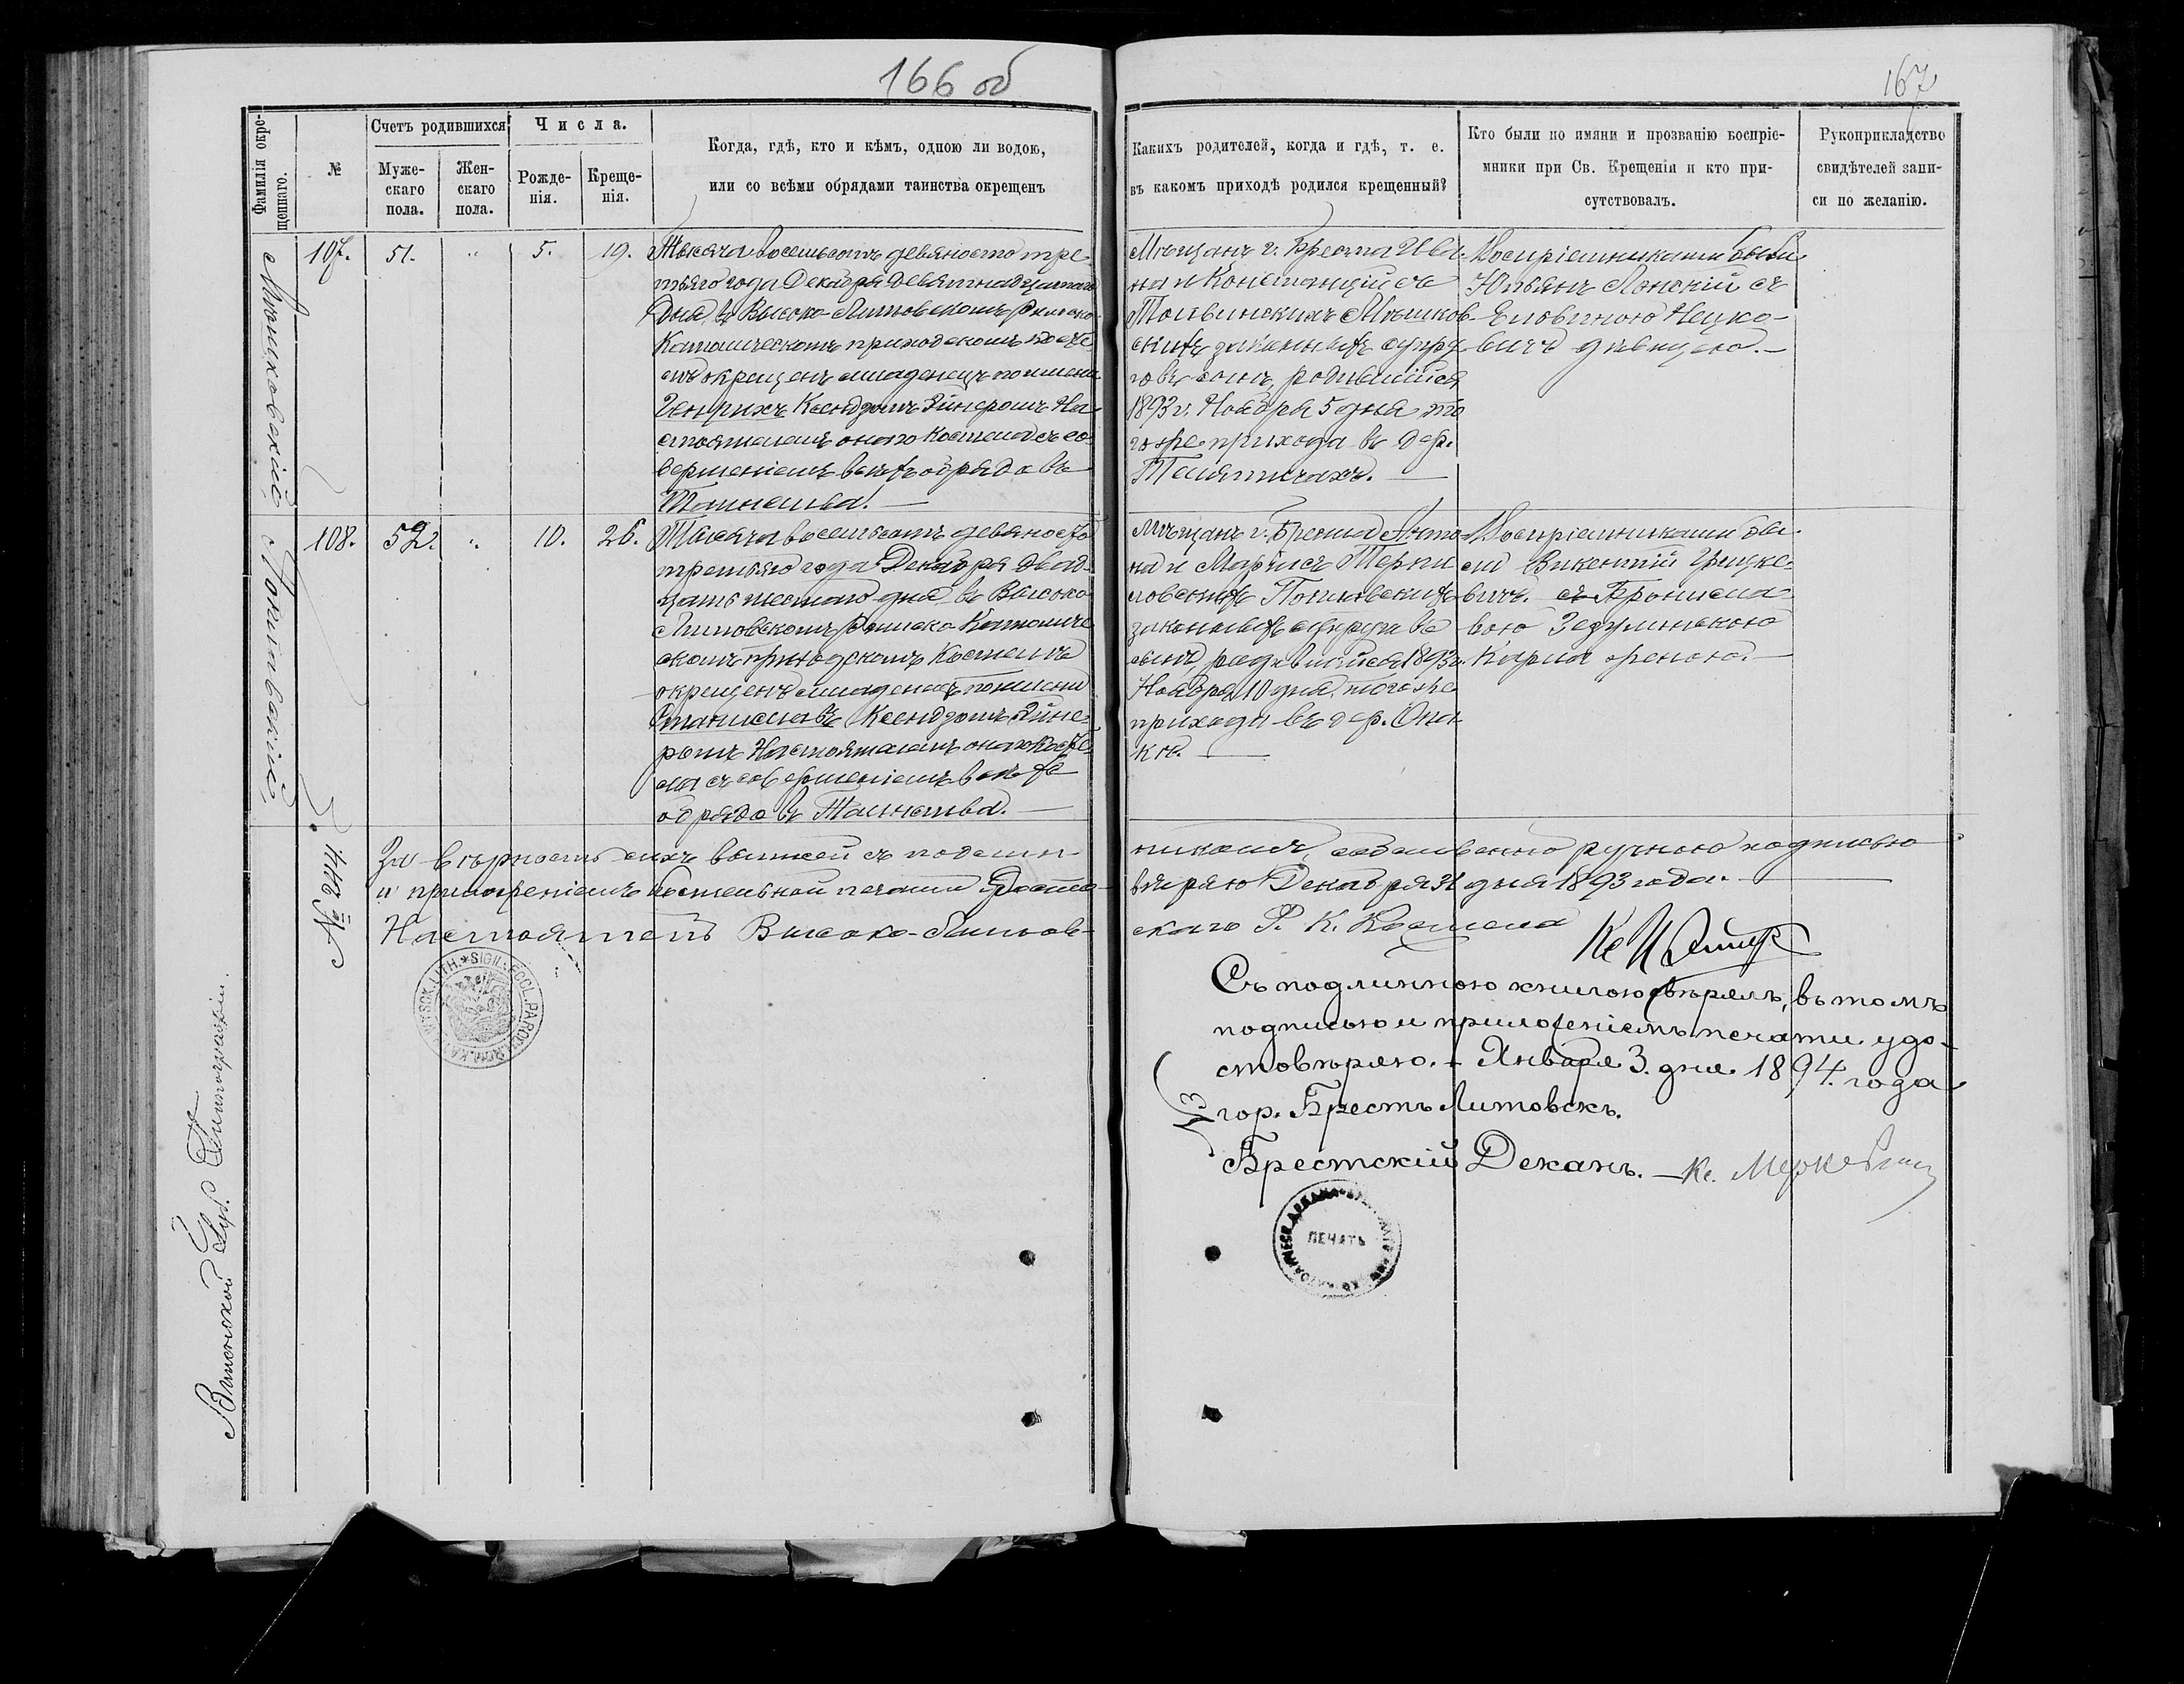 166 об
167
Фамилія окре-
щеннаго.
№
Счетъ родившихся
Муже-
скаго
пола.
Жен-
скаго
пола.
Числа.
Рожде-
нія.
Креще-
нія.
Когда, гдѣ, кто и кѣмъ, одною ли водою,
или со всѣми обрядами таинства окрещенъ
Какихъ родителей, когда и гдѣ, т. е.
въ какомъ приходѣ родился крещенный?
Кто были по имяни и прозванію воспріе-
мники при Св. Крещеніи и кто при-
сутствовалъ.
Рукоприкладство
свидѣтелей запи-
си по желанію.
Мѣшковскій
107.
51.
"
5.
19.
Тысяча восемьсотъ девяносто тре-
тьяго года Декабря девятнадцатаго
дня, въ Высоко-Литовскомъ Римско-
Католическомъ приходскомъ косте-
лѣ окрещенъ младенецъ по имени
Генрихъ Ксендзомъ Эйнеромъ На-
стоятелемъ онаго Костела съ со-
вершеніемъ всѣхъ обрядовъ
Таинства.
Мѣщанъ г. Бреста Ива-
на и Констанціи съ
Толвинскихъ Мѣшков-
скихъ законныхъ супру-
говъ сынъ, родившійся
1893 г. Ноября 5 дня то-
го же прихода въ дер.
Телятичахъ.
Воспріемниками были
Юльянъ Лонскій съ
вичъ дѣвицею.
108.
52.
"
10.
26.
Тысяча восемьсотъ девяносто
третьяго года Декабря двад-
цать шестаго дня въ Высоко-
Литовскомъ Римско Католиче-
скомъ приходскомъ Костелѣ
окрещенъ младенецъ по имени
Станиславъ Ксендзомъ Эйне-
ромъ Настоятелемъ онаго Косте-
ла съ совершеніемъ всѣхъ
обрядовъ Таинства.
Мѣщанъ г. Бреста Анто-
на и Маріи съ
законныхъ супруговъ
сынъ, родившійся 1893 г.
Ноября 10 дня, того же
прихода въ дер.
Воспріемниками бы-
ли Викентій Грицке-
вичъ съ Брониславою
Карла женою.
За вѣрность сихъ выписей съ подлин-
никомъ, собственноручною подписью
и приложеніемъ костельной печати Досто-
вѣряю Декабря 31 дня 1893 года.
Настоятель Высоко-Литов-
скаго Р. К. Костела
Кс
SIGIL. ECCL. PAROCH. ROM. KAT. WYSOK. LITH.
Съ подлинною книгою свѣрялъ, въ томъ
подписью и приложеніемъ печати удо-
стовѣряю. Января 3. дня 1894. года
№3
гор. Брестъ Литовскъ.
Брестскій Деканъ. Кс. Меркевичъ
ПЕЧАТЬ